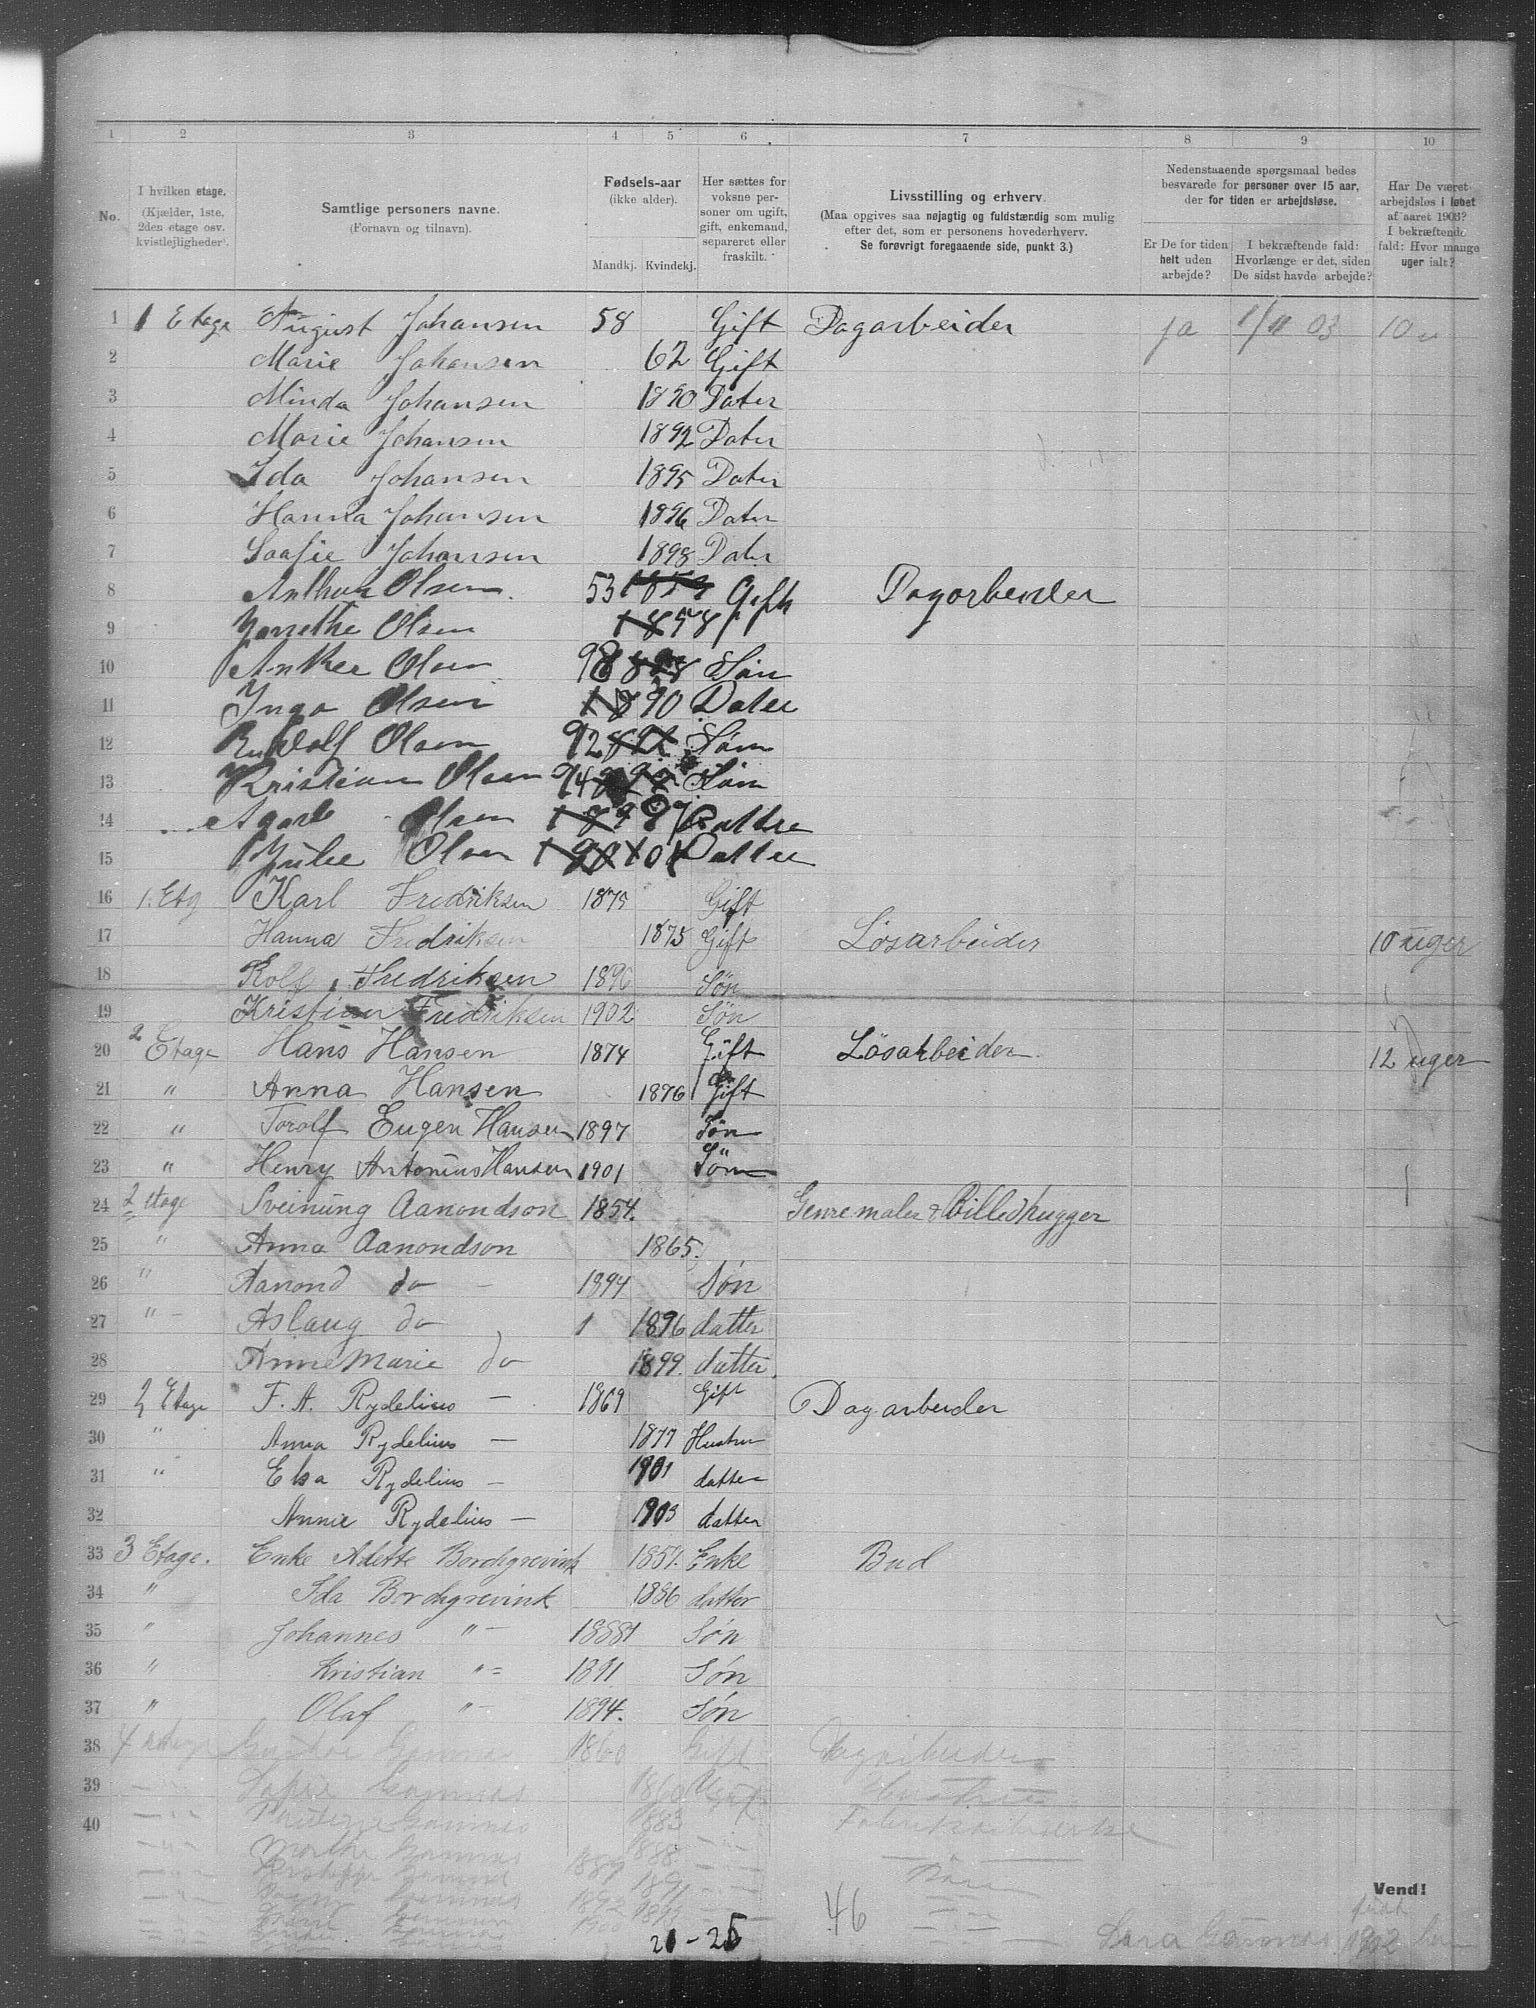 1 2 3 4 5 6 7 8 9 10
No.
I hvilken etage.
(Kjælder, 1ste,
2den etage osv.
kvistlejligheder).
Samtlige personers navne.
(Fornavn og tilnavn).
Fødsels-aar
(ikke alder).
Mandkj. Kvindekj.
Her sættes for
voksne per-
soner om ugift,
gift, enkemand,
separeret eller
fraskilt.
Livsstilling og erhverv.
(Maa opgives saa nøjagtig og fuldstændig som mulig
efter det, som er personens hovederhverv.
Se forøvrigt foregaaende side, punkt 3.)
Nedenstaaende spørgsmaal bedes
besvarede for personer over 15 aar,
der for tiden er arbejdsløse.
Er De for tiden
helt uden
arbejde?
I bekræftende fald:
Hvorlænge er det, siden
De sidst havde arbejde?
Har De været
arbejdsløs i løbet
af aaret 1903?
I bekræftende
fald: Hvor mange
uger ialt?
1 1 Etage August Johansen 58 Gift Dagarbeider ja 1/11 03 10 u
2 Marie Johansen 62 Gift
3 Minda Johansen 1890 Dater
4 Marie Johansen 1892 Dater
5 Ida Johansen 1895 Dater
6 Hanna Johansen 1896 Dater
7 Soafie Johansen 1898 Dater
8 Anthon Olsen 53 1853 Gift Dagarbeider
9 Olsen 1858
10 Anker Olsen 98 Søn
11 Inga Olsen 1890 Dater
12 Rudolf Olsen 92 Søm
13 Kristian Olsen 94 Søm
14 Olsen Dattre
15 Julie Olsen Datter
16 1. Etg Karl Fredriksen 1875 Gift
17 Hanna Fredriksen 1875 Gift Løsarbeider 10 uger
18 Rolf Fredriksen Søn
19 Kristian Fredriksen 1902 Søn
20 2 Etage Hans Hansen 1874 Gift Løsarbeider 12 uger
21 " Anna Hansen 1876 Gift
22 " Torolf Eugen Hansen 1897 Søn
23 " Henry Antonius Hansen 1901 Søn
24 2 etage Sveinung Aanondson 1854. Genremaler & Billedhugger
25 " Anna Aanondson 1865.
26 " Aanond do - 1894 Søn
27 " - Aslaug do 1 1896 datter
28 Anne Marie do 1899. datter.
29 2 Etage F. A. Rydelius - 1869 Gift Dagarbeider
30 " Anna Rydelius - 1877 Hustru
31 " Elsa Rydelius - 1901 datter
32 Annie Rydelius - 1903 datter
33 3 Etage. Enke Adette Borchgrevink 1857. Enke Bud
34 " Ida Borchgrevink 1886 datter
35 " Johannes " - 1888 Søn
36 " Kristian " = 1891 Søn
37 " Olaf " - 1894. Søn
38 4 etage Gamnes 1860 Gift Dagarbeider
39 Sofie Gamnes 1860 Gift Hustru
40 Gamnes 1883 Fabrikarbeiderske
Marthe Gamnes 1888
1889
1891
1892
Vend!
46
Lara Gamnes 1902
21 - 25